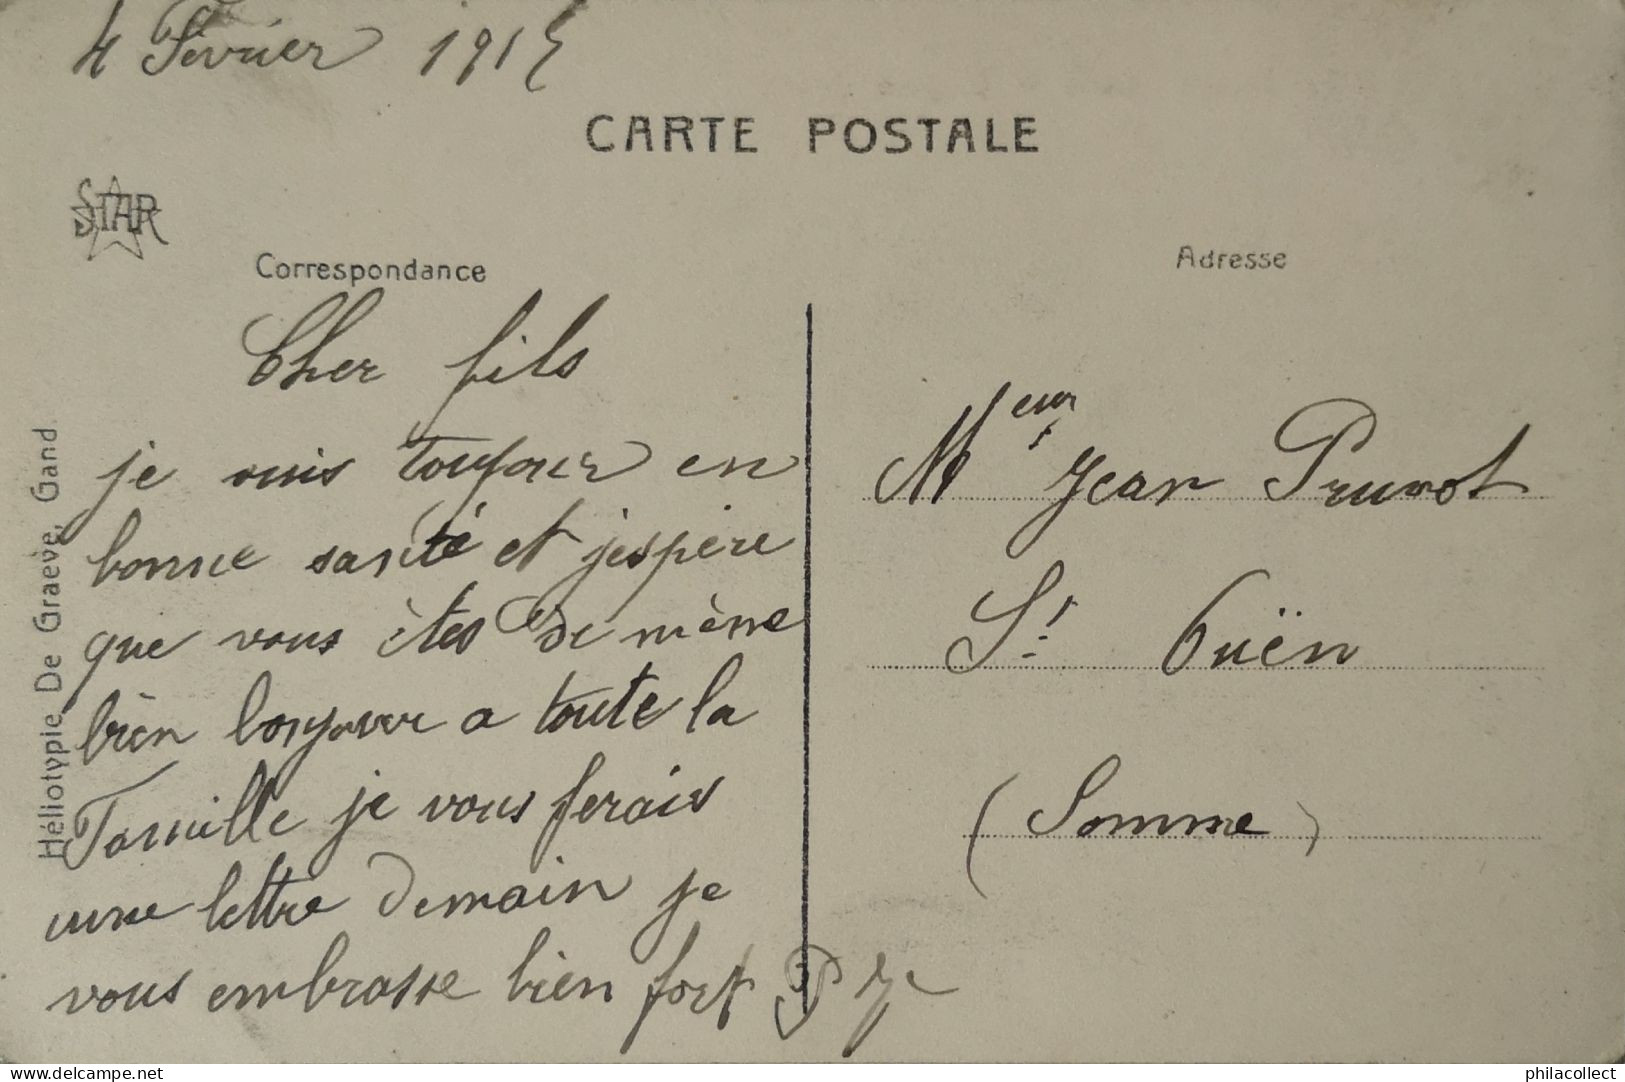 4 Février 1915
CARTE POSTALE
STAR
Correspondance
Adresse
Cher fils
je suis toujour en
bonne santé et j'espère
que vous êtes de mène
bièn bonjour a toute la
Famille je vous ferais
une lettre demain je
vous embrasse bien fort P J
Meur Jean Prunot
St Ouën
(Somme)
Héliotypie De Graeve, Gand
delcampe.net
philacollect